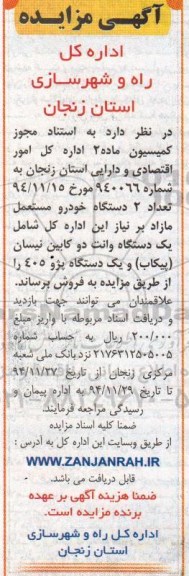 آگهی مزایده
اداره کل
راه و شهرسازی
استان زنجان
در نظر دارد به استناد مجوز
کمیسیون ماده۲ اداره کل امور
اقتصادی و دارایی استان زنجان به
شماره ۹۴۰۰۶۶ مورخ ۹۴/۱۱/۱۵
تعداد ۲ دستگاه خودرو مستعمل
مازاد بر نیاز این اداره کل شامل
یک دستگاه وانت دو کابین نیسان
(پیکاب) و یک دستگاه پژو ۴۰۵ را
از طریق مزایده به فروش برساند.
علاقمندان می توانند جهت بازدید
و دریافت اسناد مربوطه با واریز مبلغ
۲۰۰/۰۰۰ ریال به حساب شماره
۲۱۷۶۳۱۲۵۰۵۰۰۵ نزد بانک ملی شعبه
مرکزی زنجان از تاریخ ۹۴/۱۱/۲۷
تا تاریخ ۹۴/۱۱/۲۹ به اداره پیمان و
رسیدگی مراجعه فرمایند.
ضمنا کلیه اسناد مزایده
از طریق وبسایت این اداره کل به آدرس :
WWW.ZANJANRAH.IR
قابل دریافت می باشد.
ضمنا هزینه آگهی بر عهده
برنده مزایده است.
اداره کل راه و شهرسازی
استان زنجان